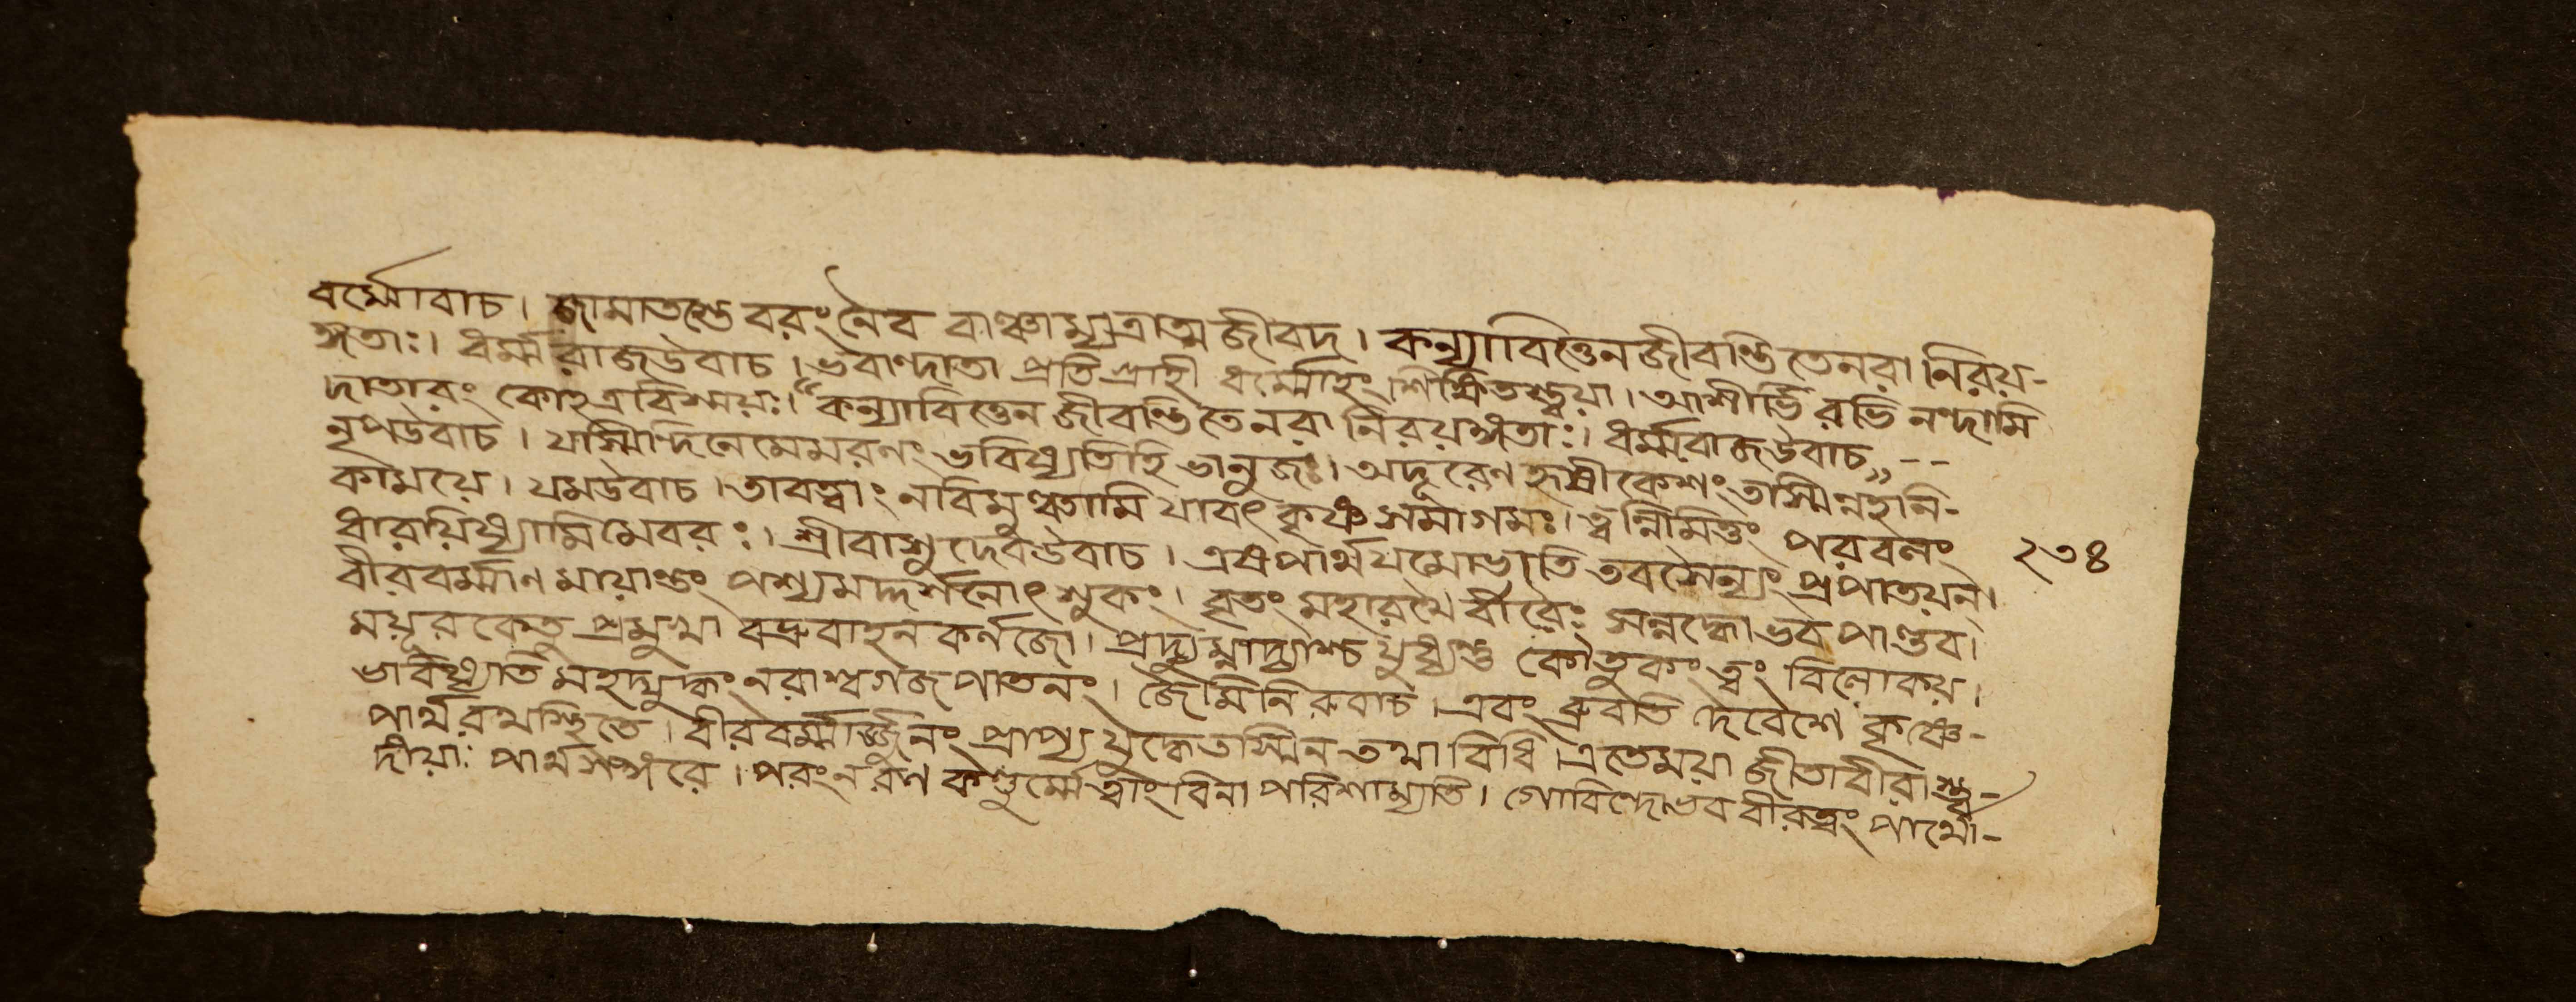 বর্ম্মোবাচ। জামাতস্তে বরং নৈব বাঞ্চাম্যত্রাত্ম জীবদ। কন্যাবিত্তেনজীবন্তি তেনরা নিরয়-
ঙ্গতাঃ। ধর্ম্মরাজউবাচ। ভবান্দাতা প্রতিগ্রাহী ধর্ম্মোহং শিক্ষিতস্ত্বয়া। আশীর্ভি রভি নন্দামি
দাতারং কোহত্রবিস্ময়ঃ। “কন্যাবিত্তেন জীবন্তি তেনরা নিরয়ঙ্গতাঃ। ধর্ম্মরাজউবাচ„--
নৃপউবাচ। যস্মিন্দিনেমেমরনং ভবিষ্যতিহি ভানুজঃ। অদূরেণ হৃষীকেশং তস্মিন্নহনি-
কাময়ে। যমউবাচ। তাবত্ত্বাং নবিমুঞ্চামি যাবৎ কৃষ্ণ সমাগমঃ। ত্বন্নিমিত্তং পরবলং
ধারয়িষ্যামিমেবরঃ। শ্রীবাসুদেবউবাচ। এষপার্থযমোভাতি তবসৈন্যং প্রপাতয়ন্।
২৩৪
বীরবর্ম্মাণ মায়ান্তং পশ্যমদ্দর্শনোৎসুকং। বৃতং মহারথৈ বীরৈঃ সন্নদ্ধোভব পাণ্ডব।
ময়ূরকেতু প্রমুখা বভ্রুবাহন কর্নজৌ। প্রদ্যুম্নাদ্যাশ্চ যুধ্যন্তু কৌতুকং ত্বং বিলোকয়।
ভবিষ্যতি মহদ্যুদ্ধং নরাশ্বগজ পাতনং। জৈমিনি রুবাচ। এবং ব্রুবতি দেবেশে কৃষ্ণে-
পার্থরথস্থিতে। বীরবর্ম্মার্জ্জুনং প্রাপ্য যুদ্ধেতস্মিন তথা বিধি। এতেময়া জীতাবীরা স্ত্ব-
দীয়াঃ পার্থসঙ্গরে। পরংনরণ কণ্ডুর্ম্মে ত্বাংবিনা পরিশাম্যতি। গোবিন্দেভব বীরত্বং পার্থো-